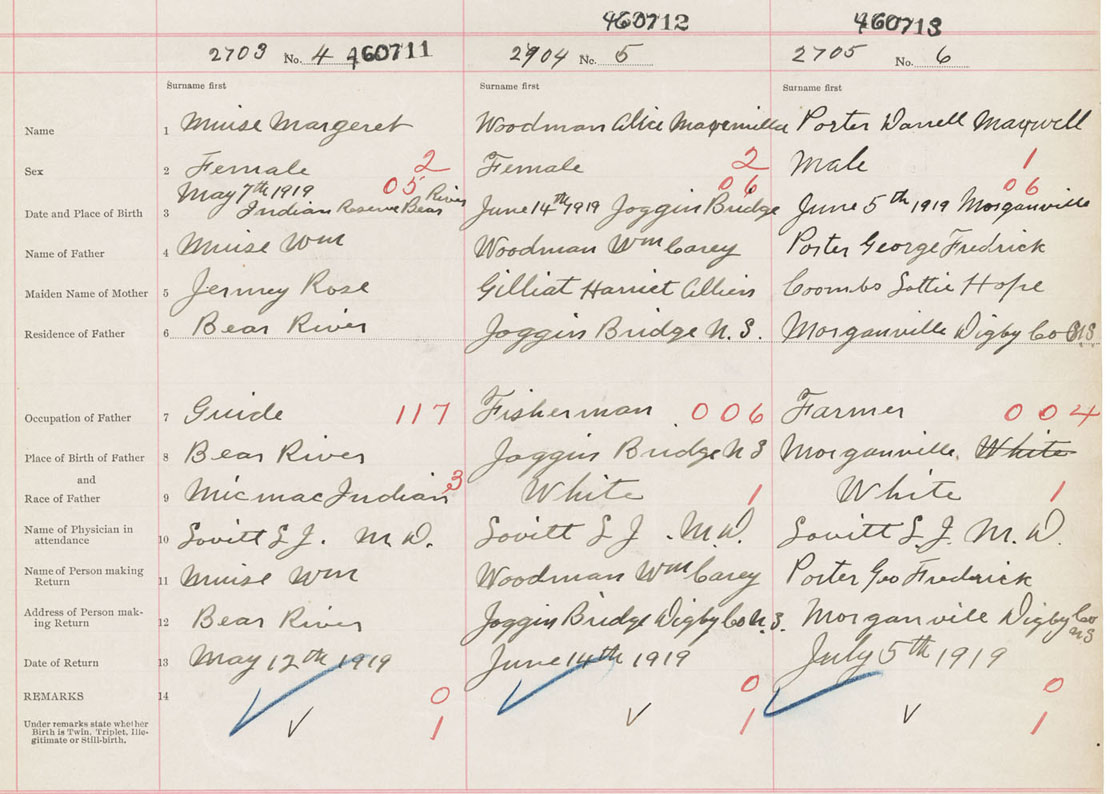 460712 460713
2703 No. 4 460711 2904 No. 5 2705 No. 6
Surname first Surname first Surname first
Name 1 Muise Margeret Woodman Alice Porter Darrell Maxwell
Sex 2 Female 2 Female 2 Male 1
May 7th 1919 05 River 06 06
Date and Place of Birth 3 Indian Reserve Bear June 14th 1919 Joggin Bridge June 5th 1919 Morganville
Name of Father 4 Muise Wm Woodman Wm Carey Porter George Fredrick
Maiden Name of Mother 5 Jermey Rose Gilliat Harriet Coombs Lottie Hope
Residence of Father 6 Bear River Joggin Bridge N.S. Morganville Digby Co N.S.
Occupation of Father 7 Guide 117 Fisherman 006 Farmer 004
Place of Birth of Father 8 Bear River Joggin Bridge N S Morganville, White
and
Race of Father 9 Micmac Indian 3 White 1 White 1
Name of Physician in
attendance 10 Lovitt L J. M.D. Lovitt L J. M.D. Lovitt L J. M.D.
Name of Person making
Return 11 Muise Wm Woodman Wm Carey Porter Geo Fredrick
Address of Person mak-
ing Return 12 Bear River Joggin Bridge Digby Co N.S. Morganville Digby Co
NS
Date of Return 13 May 12th 1919 June 14th 1919 July 5th 1919
REMARKS 14 0 0 0
Under remarks state whether
Birth is Twin, Triplet, Ille-
gitimate or Still-birth. 1 1 1